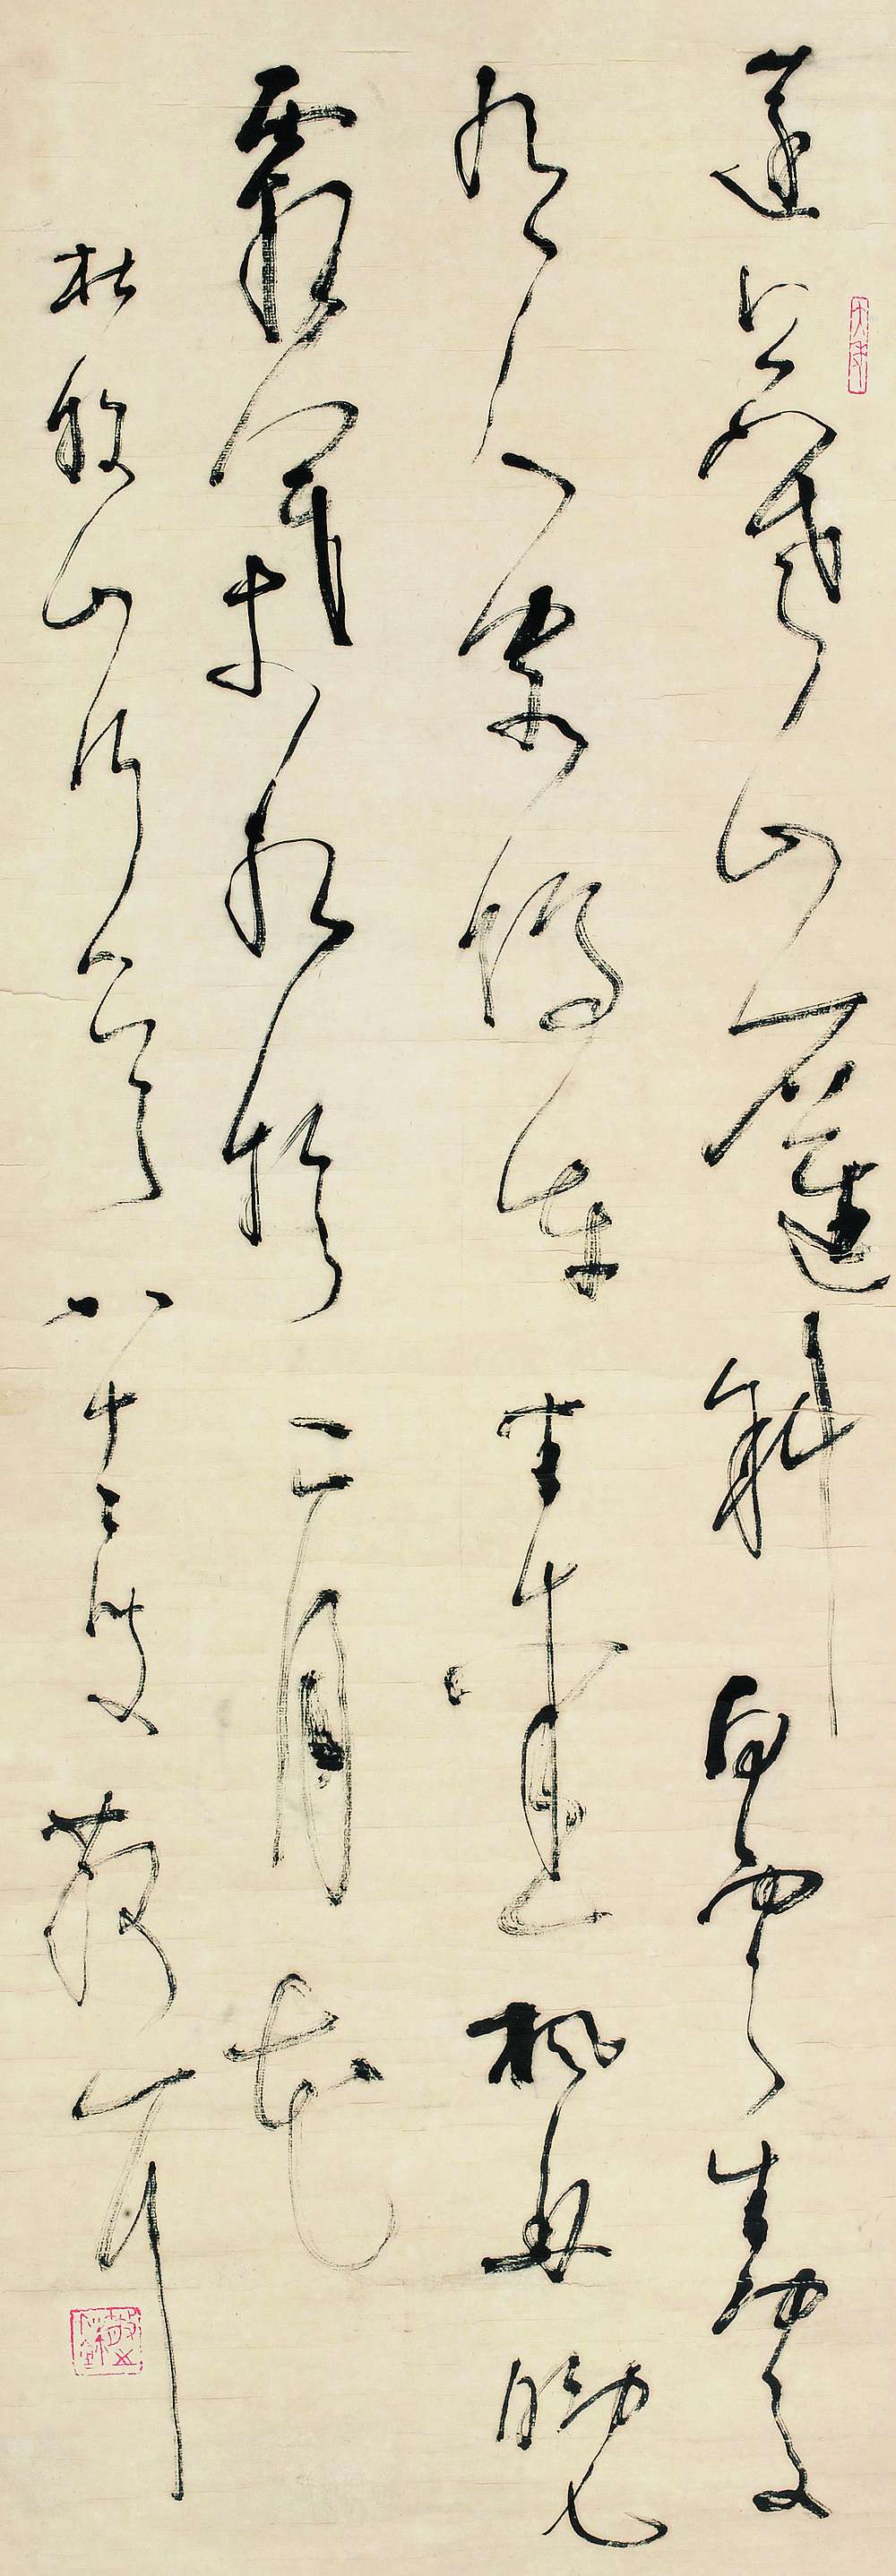 遠上寒山石逕斜白雲生處
有人家停車坐愛楓林晚
霜葉紅於二月花
杜牧山行 八十叟散耳